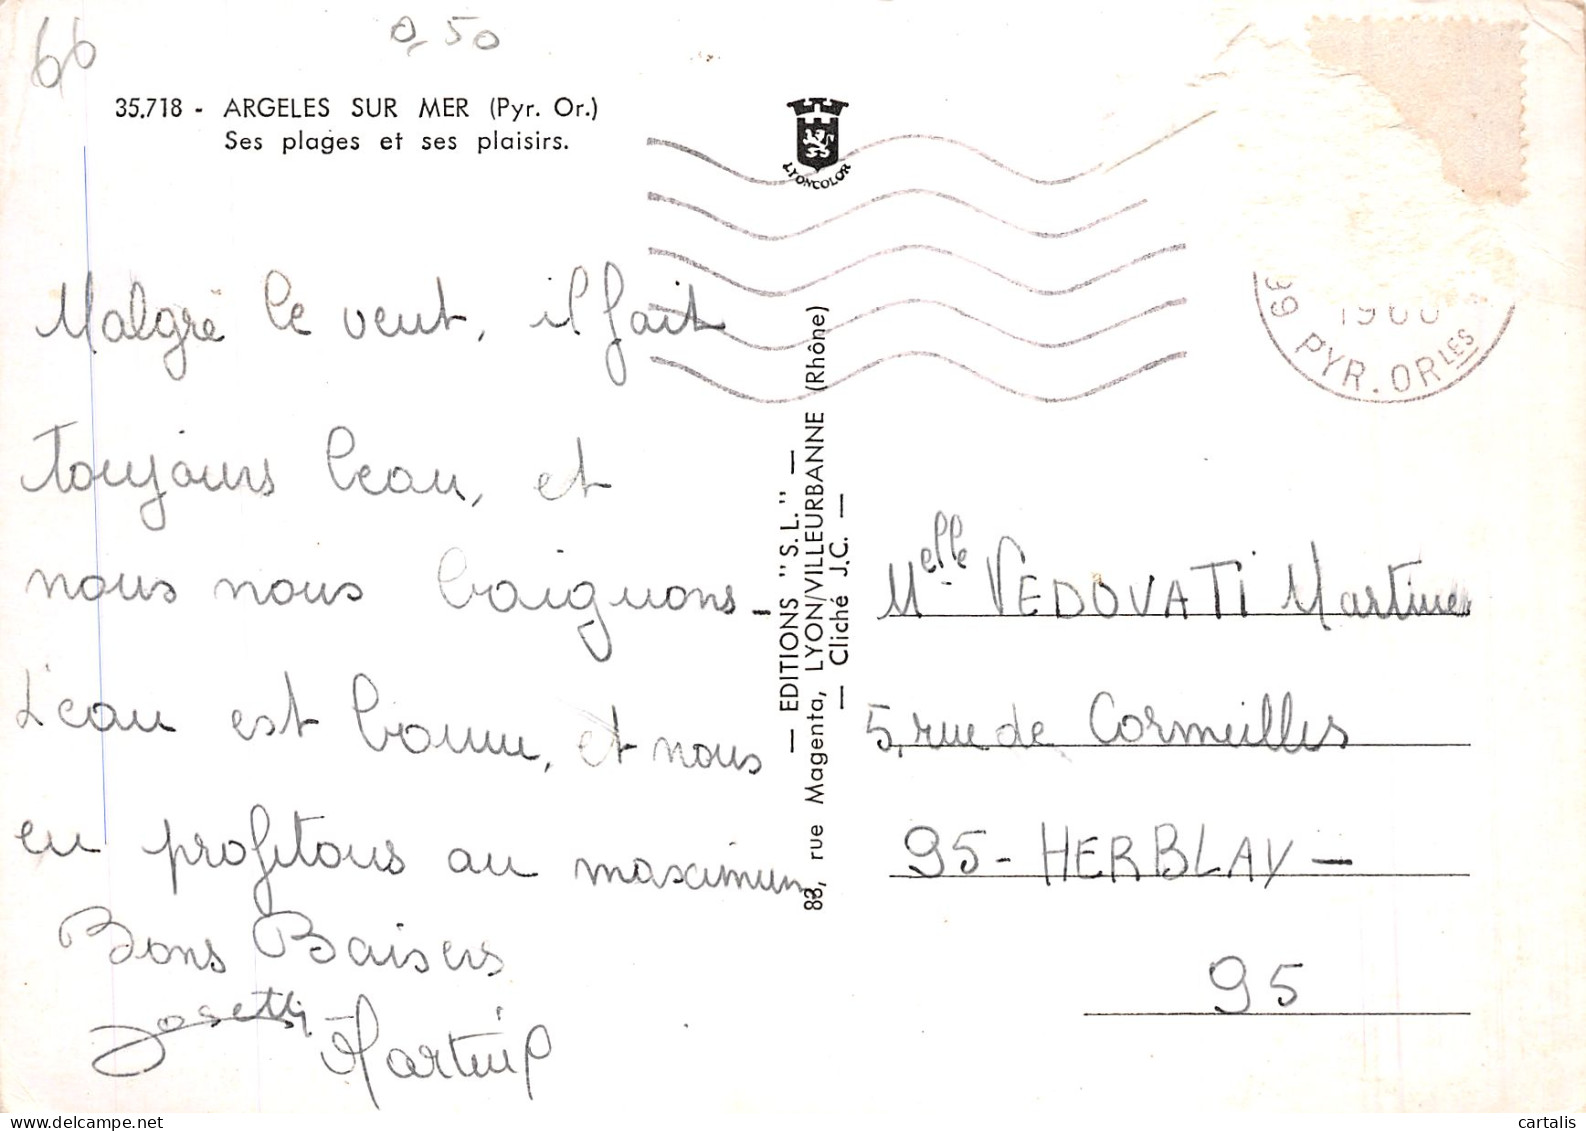 66
0,50
35.718 - ARGELES SUR MER (Pyr. Or.)
Ses plages et ses plaisirs.
LYONCOLOR
39 PYR. ORLES
Malgré le vent, il fait
toujours beau, et
nous nous baignons -
L'eau est bonne, et nous
en profitons au maximum,
Bons Baisers
Josette
— EDITIONS "S.L." —
83, rue Magenta, LYON/VILLEURBANNE (Rhône)
— Cliché J.C. —
Melle VEDOVATI Martine
5, rue de Cormeilles
95 - HERBLAY —
95
cartalis
www.delcampe.net